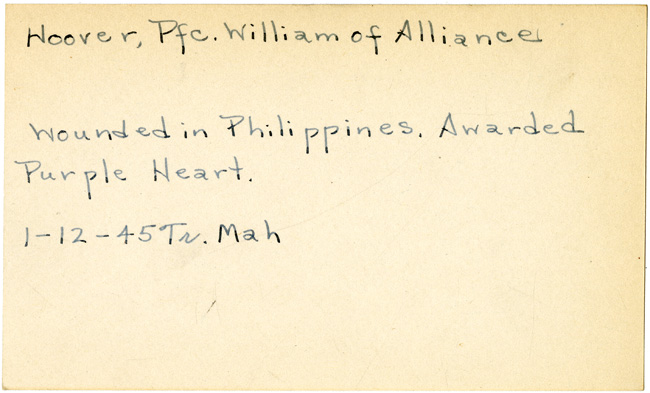 Hoover, Pfc. William of Alliance
Wounded in Philippines. Awarded
Purple Heart.
1-12-45 Tr. Mah